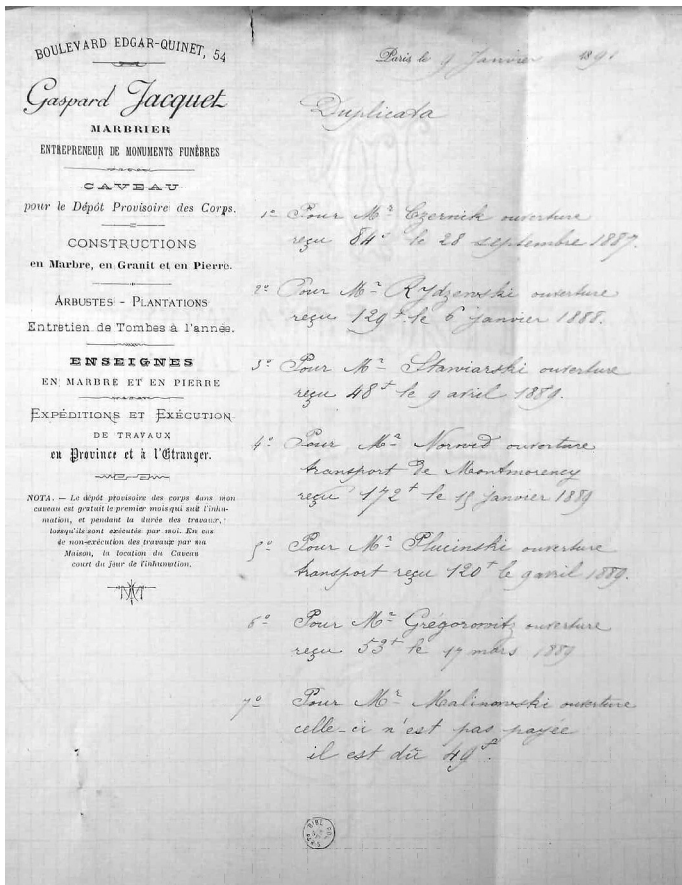 BOULEVARD EDGAR-QUINET, 54
Gaspard Jacquet
MARBRIER
ENTREPRENEUR DE MONUMENTS FUNÈBRES
CAVEAU
pour le Dépôt Provisoire des Corps.
CONSTRUCTIONS
en Marbre, en Granit et en Pierre.
ARBUSTES - PLANTATIONS
Entretien de Tombes à l'année.
ENSEIGNES
EN MARBRE ET EN PIERRE
EXPÉDITIONS ET EXÉCUTION
DE TRAVAUX
en Province et à l'Etranger.
NOTA. — Le dépôt provisoire des corps dans mon
caveau est gratuit le premier mois qui suit l'inhu-
mation, et pendant la durée des travaux,
lorsqu'ils sont exécutés par moi. En cas
de non-exécution des travaux par ma
Maison, la location du Caveau
court du jour de l'inhumation.
Paris le 9 Janvier 1891
Duplicata
1º Pour Mr Czernik ouverture
reçu 84f le 28 septembre 1887.
2º Pour Mr Rydzewski ouverture
reçu 129f le 6 janvier 1888.
3º Pour Mr Stawiarski ouverture
reçu 48f le 9 avril 1889.
4º Pour Mr Norwid ouverture
transport de Montmorency
reçu 172f le 15 janvier 1889
5º Pour Mr Plucinski ouverture
transport reçu 120f le 9 avril 1889.
6º Pour Mr Grégorowitz ouverture
reçu 53f le 17 mars 1889
7º Pour Mr Malinowski ouverture
celle-ci n'est pas payée
il est dû 49f.